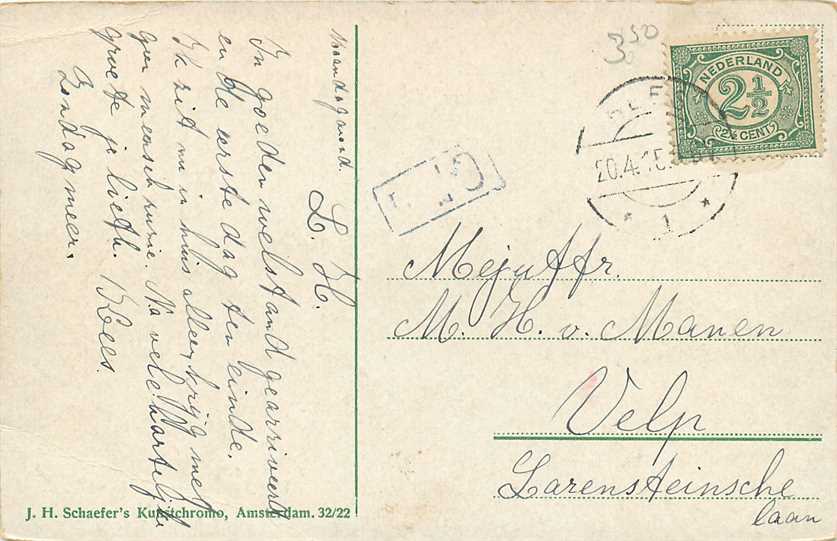 Maandagavond.
L. H.
In goeden welstand gearriveerd
en de eerste dag ten einde.
Ik zit nu in huis alleen, krijg met
geen mensch ruzie. Na vele hartelijke
groete je liefh. Kees.
Zondag meer.
J. H. Schaefer's Kunstchromo, Amsterdam. 32/22
3,50
NEDERLAND
2½
2½ CENT
20.4.15
* 1 *
Mejuffr.
M. H. v. Manen
Velp
Larensteinsche
laan